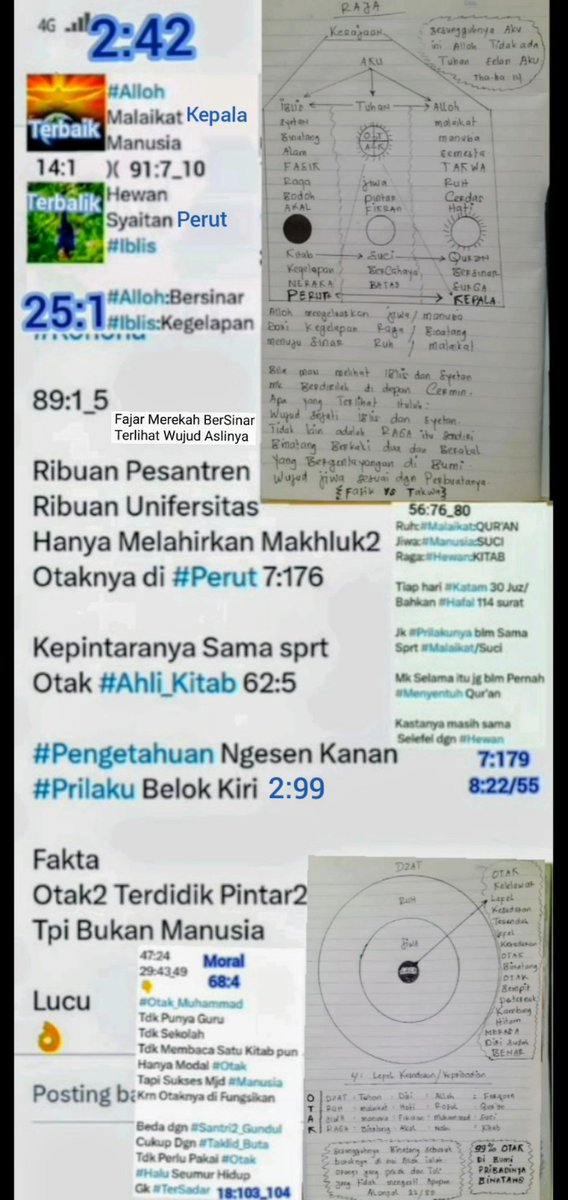 4G
2:42
#Alloh
Malaikat Kepala
Manusia
Terbaik
14:1 )( 91:7_10
Hewan
Terbalik
Syaitan Perut
#Iblis
25:1 #Alloh:Bersinar
#Iblis:Kegelapan
89:1_5
Fajar Merekah BerSinar
Terlihat Wujud Aslinya
Ribuan Pesantren
Ribuan Unifersitas
Hanya Melahirkan Makhluk2
Otaknya di #Perut 7:176
Kepintaranya Sama sprt
Otak #Ahli_Kitab 62:5
#Pengetahuan Ngesen Kanan
#Prilaku Belok Kiri 2:99
Fakta
Otak2 Terdidik Pintar2
Tpi Bukan Manusia
Lucu
Posting ba
RAJA
Kerajaan
Sesungguhnya Aku
ini Alloh Tidak ada
Tuhan selain Aku
Tha-ha 14
AKU
Iblis Tuhan Alloh
Syetan malaikat
Binatang manusia
Alam Semesta
FASIK TAKWA
Raga Jiwa Ruh
Bodoh Pintar Cerdas
AKAL FIKRAN Hati
Kitab Suci QURAN
Kegelapan BerCahaya Bersinar
NERAKA BATAS SURGA
PERUT KEPALA
Alloh mengeluarkan jiwa/manusia
dari Kegelapan Raga/Binatang
menuju Sinar Ruh/malaikat
Bila mau melihat Iblis dan Syetan
mk Berdirilah di depan Cermin.
Apa yang Terlihat itulah:
Wujud Sejati Iblis dan Syetan.
Tidak lain adalah RAGA itu sendiri
Binatang Berkaki dua dan Berakal
Yang Bergentayangan di Bumi
Wujud jiwa sesuai dgn Perbuatanya.
{Fasik vs Takwa}
56:76_80
Ruh:#Malaikat:QUR'AN
Jiwa:#Manusia:SUCI
Raga:#Hewan:KITAB
Tiap hari #Katam 30 Juz/
Bahkan #Hafal 114 surat
Jk #Prilakunya blm Sama
Sprt #Malaikat/Suci
Mk Selama itu jg blm Pernah
#Menyentuh Qur'an
Kastanya masih sama
Selefel dgn #Hewan
7:179
8:22/55
47:24
29:43,49
Moral
68:4
#Otak_Muhammad
Tdk Punya Guru
Tdk Sekolah
Tdk Membaca Satu Kitab pun
Hanya Modal #Otak
Tapi Sukses Mjd #Manusia
Krn Otaknya di Fungsikan
Beda dgn #Santri2_Gundul
Cukup Dgn #Taklid_Buta
Tdk Perlu Pakai #Otak
#Halu Seumur Hidup
Gk #TerSadar 18:103_104
DZAT
RUH
JIWA
OTAK
Kelelawar
Lepel
Kesadaran
Terendah
Lepel
Kesadaran
OTAK
Binatang
OTAK
Sempit
Kambing
Hitam
MERASA
Diri Sudah
BENAR
4: Lepel Kesadaran/Kepribadian
O DZAT : Tuhan : Diri : Alloh
T RUH : malaikat : Hati : Rosul : Qur'an
A JIWA : manusia : Fikiran : Muhammad : Suci
K RAGA : Binatang : Akal : Nabi : Kitab
Sesungguhnya Binatang seburuk
buruknya di sisi Alloh ialah
Orang2 yang pekak dan Tuli
yang tidak mengerti Apapun
99% OTAK
DI BUMI
PRIBADINYA
BINATANG